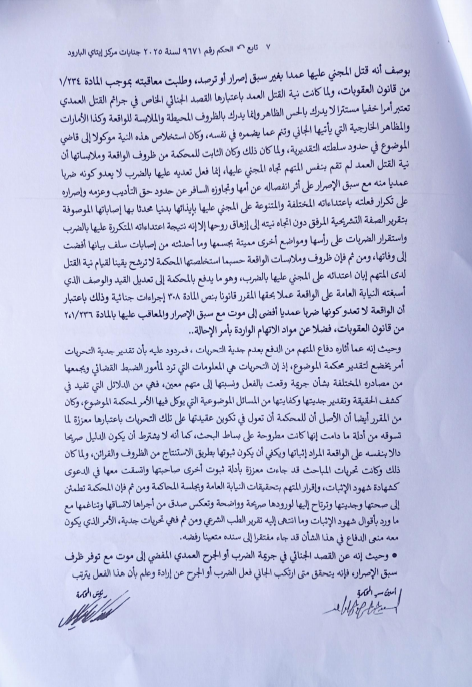 ٧ تابع الحكم رقم ٩٦٧١ لسنة ٢٠٢٥ جنايات مركز إيتاي البارود
بوصف أنه قتل المجني عليها عمدا بغير سبق إصرار أو ترصد، وطلبت معاقبته بموجب المادة ١/٢٣٤
من قانون العقوبات، ولما كانت نية القتل العمد باعتبارها القصد الجنائي الخاص في جرائم القتل العمدي
تعتبر أمرا خفيا مستترا لا يدرك بالحس الظاهر وإنما يدرك بالظروف المحيطة والملابسة للواقعة وكذا الأمارات
والمظاهر الخارجية التي يأتيها الجاني وتنم عما يضمره في نفسه، وكان استخلاص هذه النية موكولا إلى قاضي
الموضوع في حدود سلطته التقديرية، ولما كان ذلك وكان الثابت للمحكمة من ظروف الواقعة وملابساتها أن
نية القتل العمد لم تقم بنفس المتهم تجاه المجني عليها، إنما فعل تعديه عليها بالضرب لا يعدو كونه ضربا
عمديا منه مع سبق الإصرار على أثر انفصاله عن أمها وتجاوزه السافر عن حدود حق التأديب وعزمه وإصراره
على تكرار فعلته باعتداءاته المختلفة والمتنوعة على المجني عليها بإيذائها بدنيا محدثا بها إصاباتها الموصوفة
بتقرير الصفة التشريحية المرفق دون اتجاه نيته إلى إزهاق روحها إلا إنه نتيجة اعتداءاته المتكررة عليها بالضرب
واستقرار الضربات على رأسها ومواضع أخرى مميتة بجسمها وما أحدثته من إصابات سلف بيانها أفضت
إلى وفاتها، ومن ثم فإن ظروف وملابسات الواقعة حسبما استخلصتها المحكمة لا ترشح يقينا لقيام نية القتل
لدى المتهم إبان اعتدائه على المجني عليها بالضرب، وهو ما يدفع بالمحكمة إلى تعديل القيد والوصف الذي
أسبغته النيابة العامة على الواقعة عملا بحقها المقرر قانونا بنص المادة ٣٠٨ إجراءات جنائية وذلك باعتبار
أن الواقعة لا تعدو كونها ضربا عمديا أفضى إلى موت مع سبق الإصرار والمعاقب عليها بالمادة ٢،١/٢٣٦
من قانون العقوبات، فضلا عن مواد الاتهام الواردة بأمر الإحالة..
وحيث إنه عما أثاره دفاع المتهم من الدفع بعدم جدية التحريات، فمردود عليه بأن تقدير جدية التحريات
أمر يخضع لتقدير محكمة الموضوع، إذ إن التحريات هي المعلومات التي ترد لمأمور الضبط القضائي ويجمعها
من مصادره المختلفة بشأن جريمة وقعت بالفعل ونسبتها إلى متهم معين، فهي من الدلائل التي تفيد في
كشف الحقيقة وتقدير جديتها وكفايتها من المسائل الموضوعية التي يوكل فيها الأمر لمحكمة الموضوع، وكان
من المقرر أيضا أن الأصل أن للمحكمة أن تعول في تكوين عقيدتها على تلك التحريات باعتبارها معززة لما
تسوقه من أدلة ما دامت إنها كانت مطروحة على بساط البحث، كما أنه لا يشترط أن يكون الدليل صريحا
دالا بنفسه على الواقعة المراد إثباتها ويكفي أن يكون ثبوتها بطريق الاستنتاج من الظروف والقرائن، ولما كان
ذلك وكانت تحريات المباحث قد جاءت معززة بأدلة ثبوت أخرى صاحبتها واتسقت معها في الدعوى
كشهادة شهود الإثبات، وإقرار المتهم بتحقيقات النيابة العامة وبجلسة المحاكمة ومن ثم فإن المحكمة تطمئن
إلى صحتها وجديتها وترتاح إليها لورودها صريحة وواضحة وتعكس صدق من أجراها لاتساقها وتناغمها مع
ما ورد بأقوال شهود الإثبات وما انتهى إليه تقرير الطب الشرعي ومن ثم فهي تحريات جدية، الأمر الذي يكون
معه منعى الدفاع في هذا الشأن قد جاء مفتقرا إلى سنده متعينا رفضه.
• وحيث إنه عن القصد الجنائي في جريمة الضرب أو الجرح العمدي المفضي إلى موت مع توفر ظرف
سبق الإصرار، فإنه يتحقق متى ارتكب الجاني فعل الضرب أو الجرح عن إرادة وعلم بأن هذا الفعل يترتب
أمين سر المحكمة
رئيس المحكمة